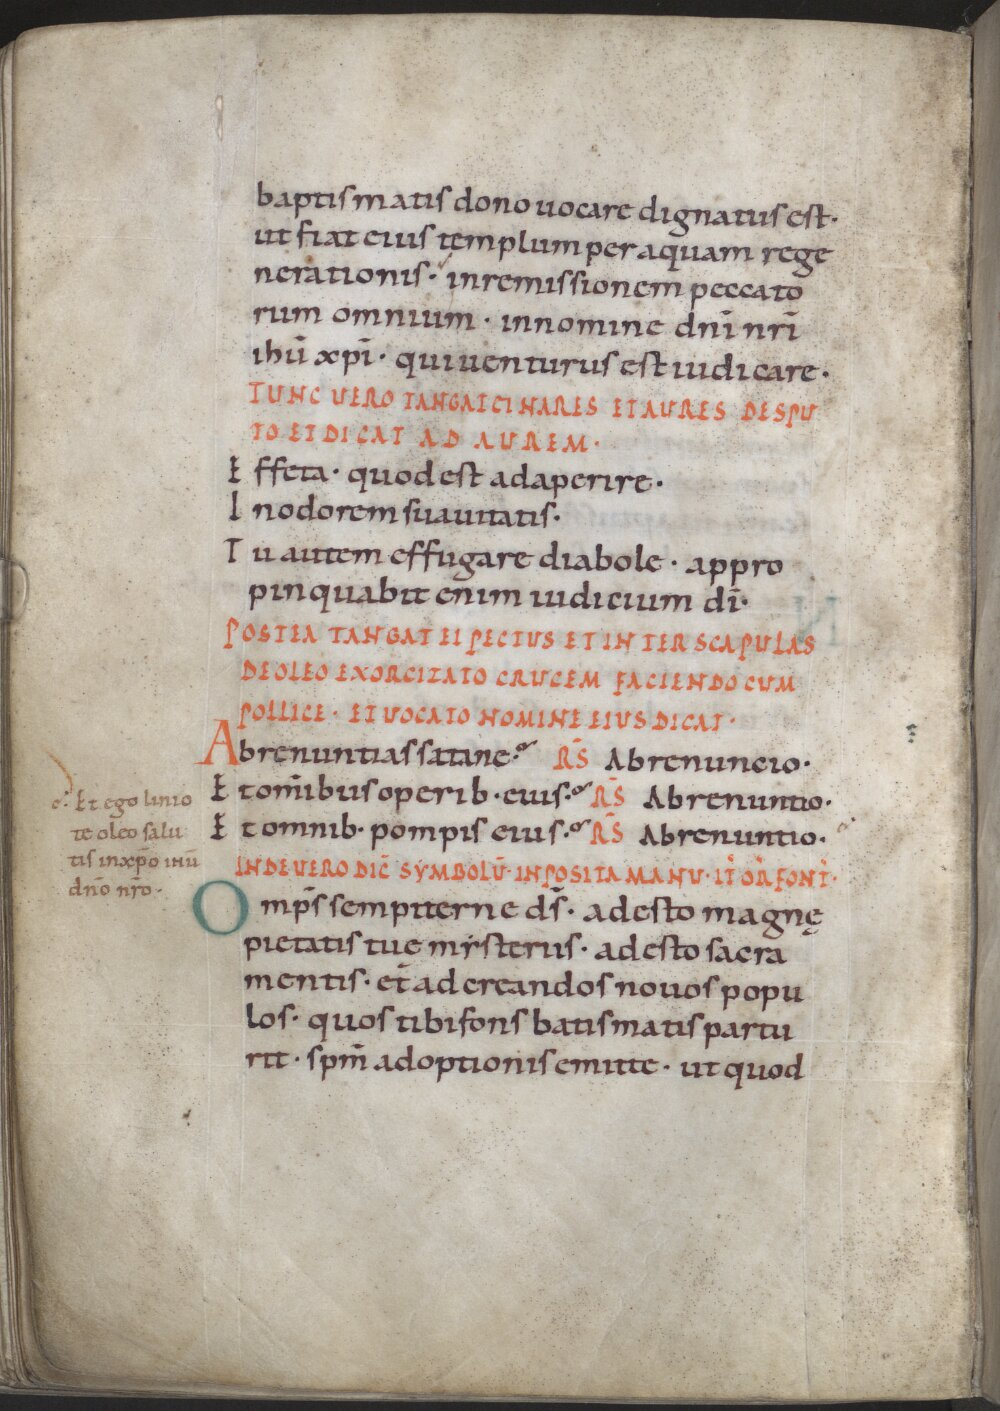 baptismatis dono uocare dignatus est·
ut fiat eius templum per aquam rege
nerationis· in remissionem peccato
rum omnium· in nomine dnī nrī
ihū xp̄i· qui uenturus est iudicare·
TUNC UERO TANGAT CI NARES ET AURES DE SPU
TO ET DICAT AD AUREM·
Effeta· quod est adaperire·
In odorem suauitatis·
Tu autem effugare diabole· appro
pinquabit enim iudicium dī·
POSTEA TANGAT EI PECTUS ET INTER SCAPULAS
DE OLEO EXORCIZATO CRUCEM FACIENDO CUM
POLLICE· ET UOCATO NOMINE EIUS DICAT·
Abrenuntias satane· R̄S Abrenuncio·
Et om̄ibus operib· eius· R̄S Abrenuntio·
Et omnib· pompis eius· R̄S Abrenuntio·
Et ego linio
te oleo salu
tis in xp̄o ihū
dn̄o nr̄o·
INDE UERO DIC̄ SYMBOLŪ· INPOSITA MANU· IT̄ OR̄ FONT̄·
Omp̄s sempiterne d̄s· adesto magnę
pietatis tue mysteriis· adesto sacra
mentis· et̄ ad creandos nouos popu
los· quos tibi fons batismatis partu
rit· sp̄m adoptionis emitte· ut quod